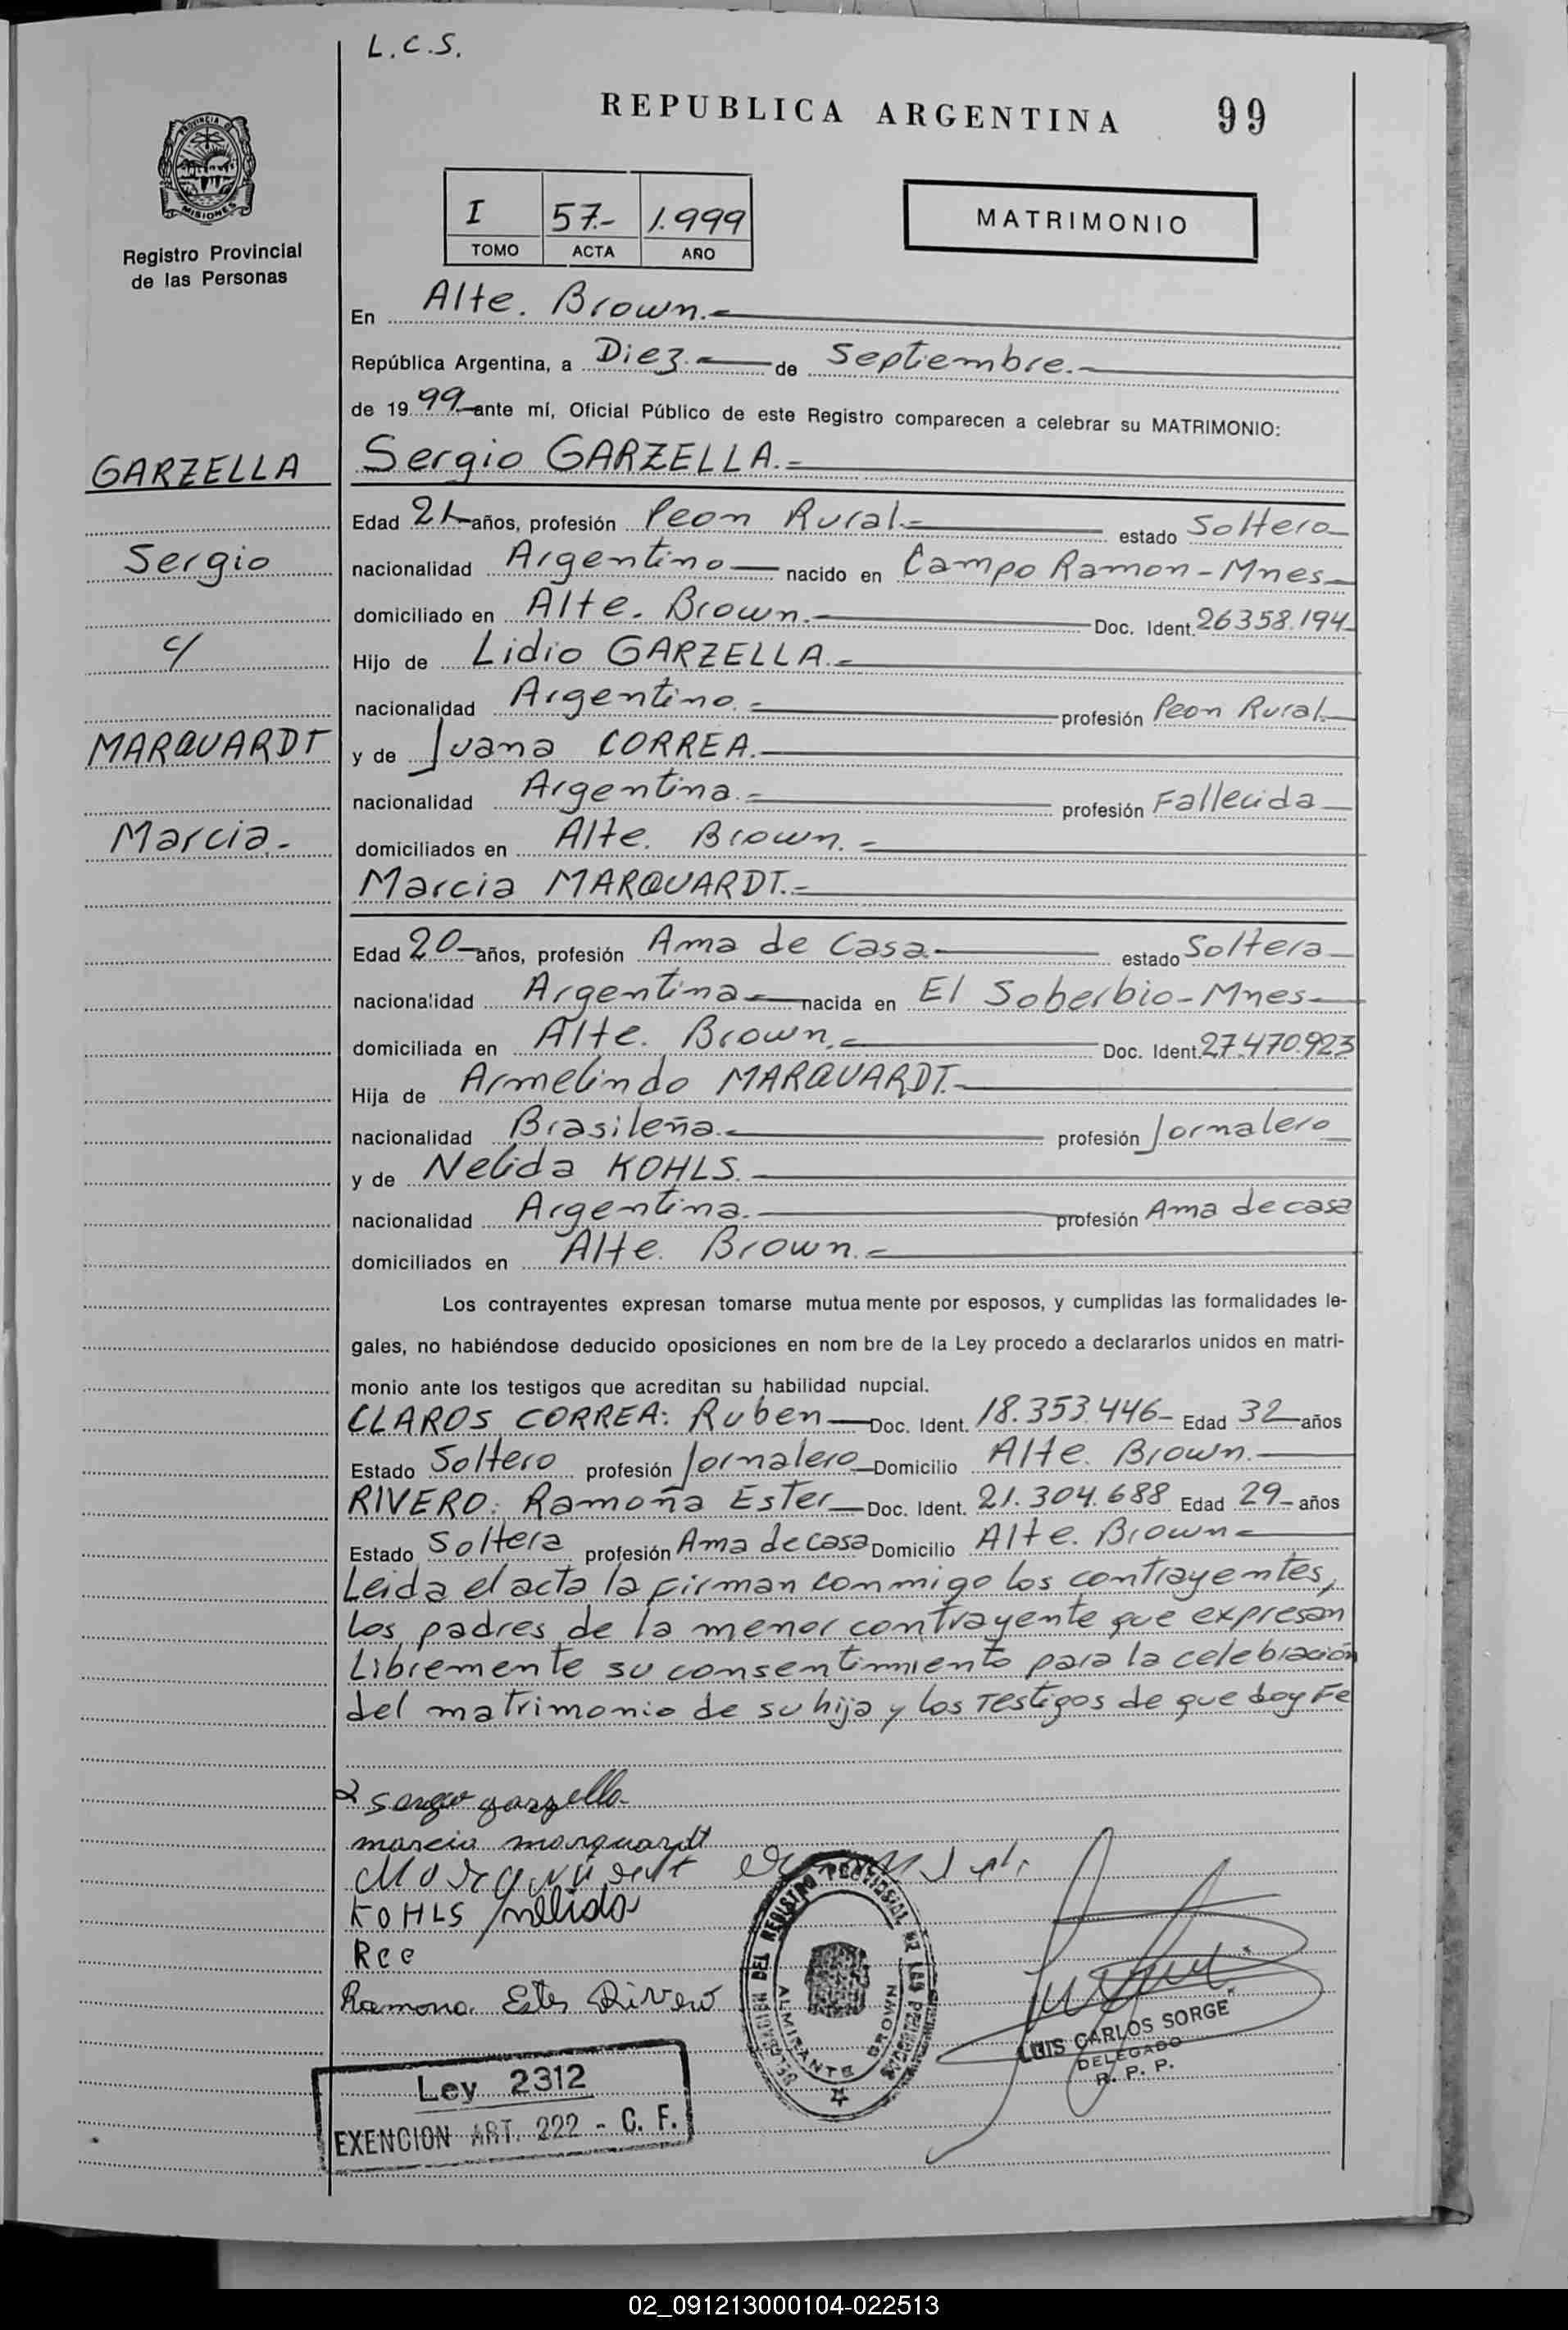 L.C.S.
REPUBLICA ARGENTINA 99
PROVINCIA DE
MISIONES
Registro Provincial
de las Personas
I 57.- 1.999
TOMO ACTA AÑO
MATRIMONIO
En Alte. Brown.-
República Argentina, a Diez.- de Septiembre.-
de 1999.- ante mí, Oficial Público de este Registro comparecen a celebrar su MATRIMONIO:
GARZELLA
Sergio
c/
MARQUARDT
Marcia.-
Sergio GARZELLA.-
Edad 21- años, profesión Peon Rural.- estado Soltero-
nacionalidad Argentino- nacido en Campo Ramon - Mnes-
domiciliado en Alte. Brown.- Doc. Ident. 26358.194-
Hijo de Lidio GARZELLA.-
nacionalidad Argentino.- profesión Peon Rural.-
y de Juana CORREA.-
nacionalidad Argentina.- profesión Fallecida-
domiciliados en Alte. Brown.-
Marcia MARQUARDT.-
Edad 20- años, profesión Ama de Casa.- estado Soltera-
nacionalidad Argentina- nacida en El Soberbio - Mnes-
domiciliada en Alte. Brown.- Doc. Ident. 27.470.923
Hija de Armelindo MARQUARDT.-
nacionalidad Brasileña.- profesión Jornalero-
y de Nelida KOHLS.-
nacionalidad Argentina.- profesión Ama de casa
domiciliados en Alte. Brown.-
Los contrayentes expresan tomarse mutua mente por esposos, y cumplidas las formalidades le-
gales, no habiéndose deducido oposiciones en nom bre de la Ley procedo a declararlos unidos en matri-
monio ante los testigos que acreditan su habilidad nupcial.
CLAROS CORREA: Ruben- Doc. Ident. 18.353.446- Edad 32- años
Estado Soltero profesión Jornalero- Domicilio Alte. Brown.-
RIVERO: Ramoña Ester- Doc. Ident. 21.304.688 Edad 29- años
Estado Soltera profesión Ama de casa Domicilio Alte. Brown-
Leida el acta la firman conmigo los contrayentes,
los padres de la menor contrayente que expresan
Libremente su consentimiento para la celebración
del matrimonio de su hija y los Testigos de que doy Fe
Sergio garzella
marcia marquardt
KOHLS nelida
Rcc
Ramona Ester Rivero
DELEGACION DEL REGISTRO PROVINCIAL DE LAS PERSONAS
ALMIRANTE BROWN
LUIS CARLOS SORGE
DELEGADO
R. P. P.
Ley 2312
EXENCION ART. 222 - C. F.
02_091213000104-022513